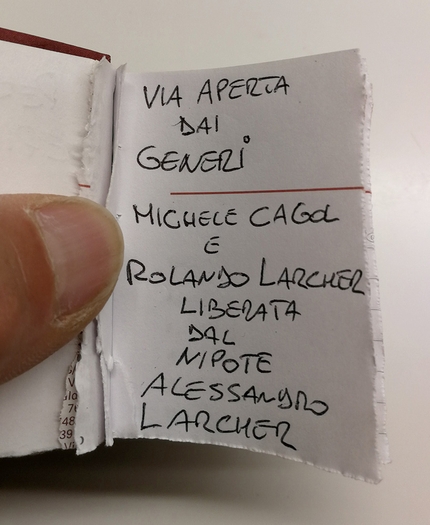 VIA APERTA
DAI
GENERI
MICHELE CAGOL
E
ROLANDO LARCHER
LIBERATA
DAL
NIPOTE
ALESSANDRO
LARCHER